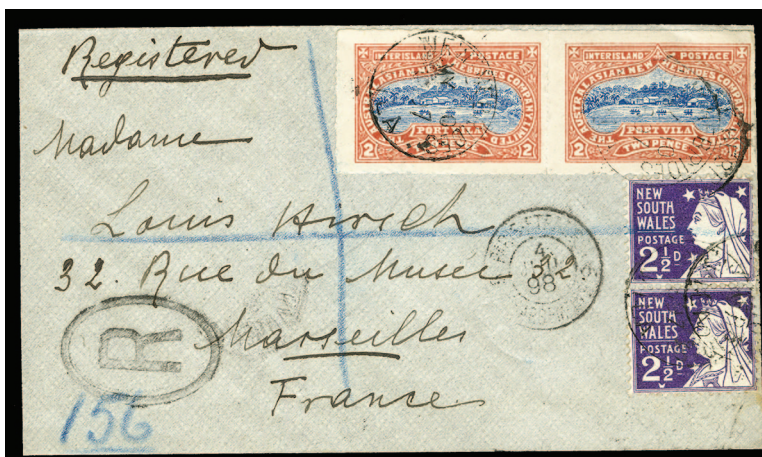 Registered
Madame
Louis Hirsch
32. Rue du Musée
Marseilles
France
R
156
INTERISLAND POSTAGE
THE AUSTRALASIAN NEW HEBRIDES COMPANY LIMITED
PORT VILA
2 TWO PENCE 2
INTERISLAND POSTAGE
THE AUSTRALASIAN NEW HEBRIDES COMPANY LIMITED
PORT VILA
2 TWO PENCE 2
4
98
NEW
SOUTH
WALES
POSTAGE
2½D
NEW
SOUTH
WALES
POSTAGE
2½D